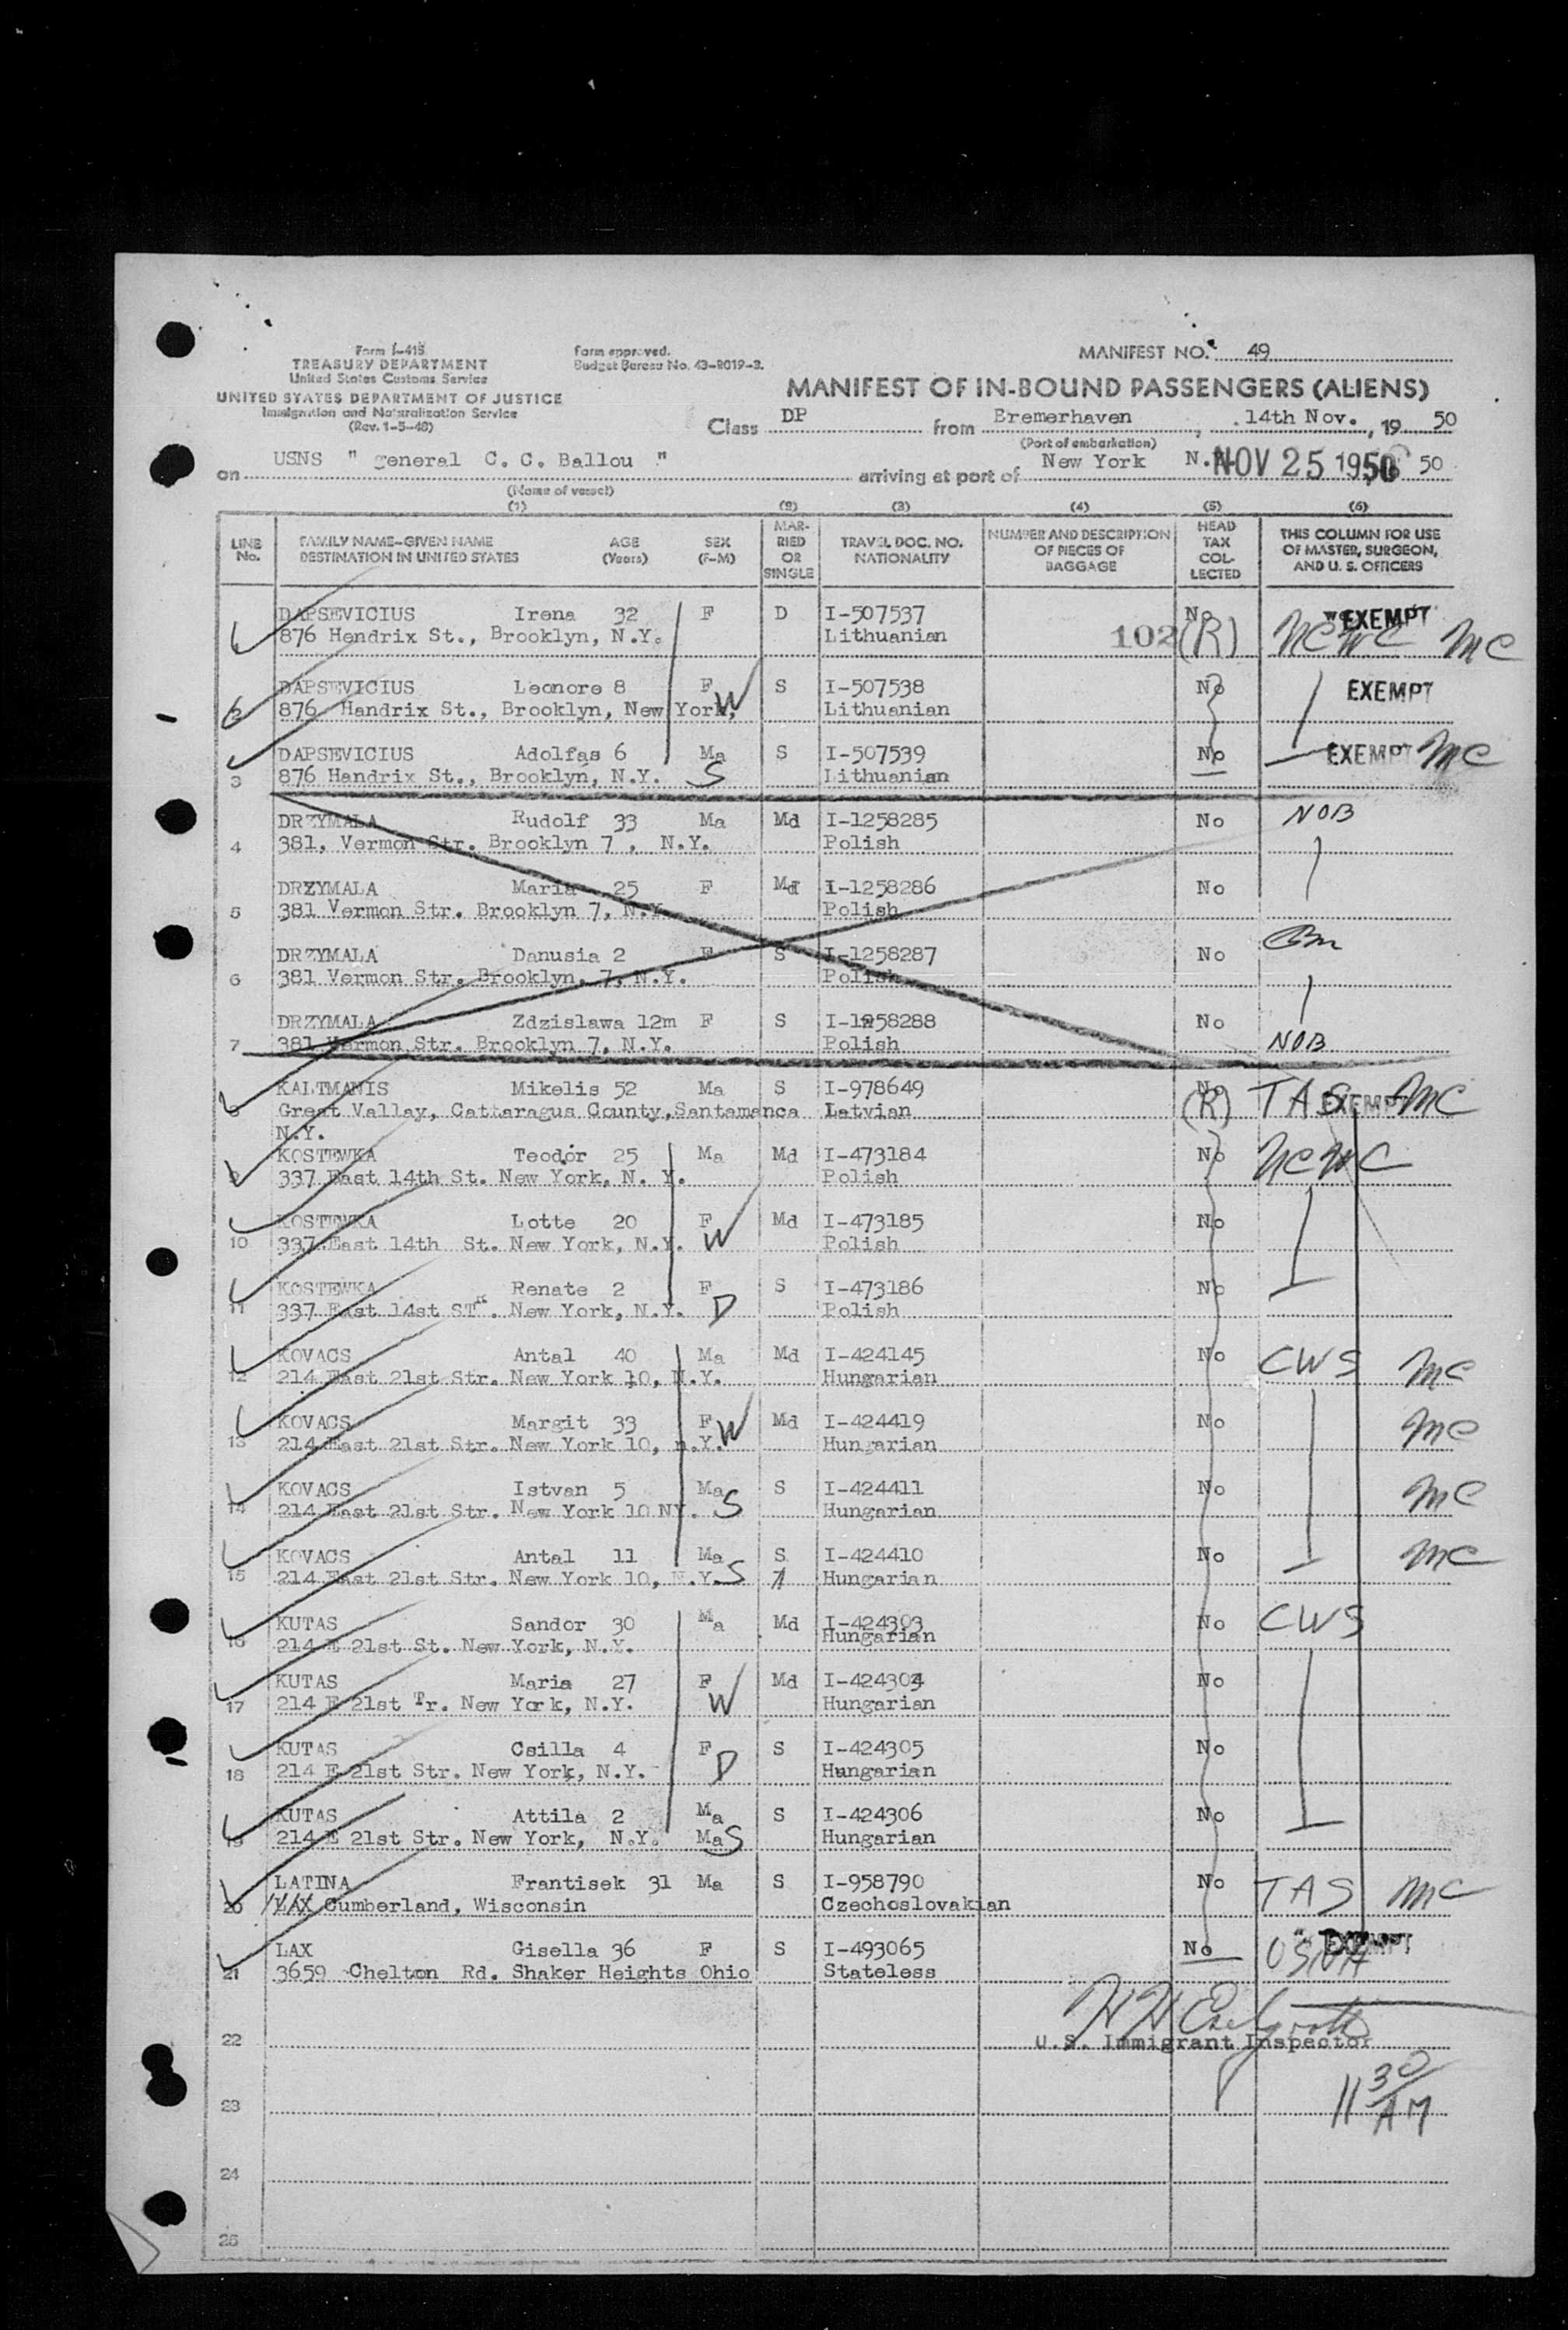 Form I-415
TREASURY DEPARTMENT
United States Customs Service
UNITED STATES DEPARTMENT OF JUSTICE
Immigration and Naturalization Service
(Rev. 1-5-48)
Form approved.
Budget Bureau No. 43-R019-3.
MANIFEST NO. 49
MANIFEST OF IN-BOUND PASSENGERS (ALIENS)
Class DP from Bremerhaven, 14th Nov., 19 50
(Port of embarkation)
on USNS " general C. C. Ballou " arriving at port of New York N. NOV 25 1950 50
(Name of vessel)
(1) (2) (3) (4) (5) (6)
LINE No. FAMILY NAME—GIVEN NAME DESTINATION IN UNITED STATES AGE (Years) SEX (F-M) MAR-RIED OR SINGLE TRAVEL DOC. NO. NATIONALITY NUMBER AND DESCRIPTION OF PIECES OF BAGGAGE HEAD TAX COL-LECTED THIS COLUMN FOR USE OF MASTER, SURGEON, AND U. S. OFFICERS
DAPSEVICIUS Irena 32 F D I-507537 No EXEMPT
876 Hendrix St., Brooklyn, N.Y. Lithuanian 102 (R) NCWC MC
DAPSEVICIUS Leonore 8 F W S I-507538 No EXEMPT
876 Handrix St., Brooklyn, New York, Lithuanian
DAPSEVICIUS Adolfas 6 Ma S I-507539 No EXEMPT MC
3 876 Handrix St., Brooklyn, N.Y. S Lithuanian
DRZYMALA Rudolf 33 Ma Md I-1258285 No NOB
4 381, Vermon Str. Brooklyn 7 , N.Y. Polish
DRZYMALA Maria 25 F Md I-1258286 No
5 381 Vermon Str. Brooklyn 7, N.Y. Polish
DRZYMALA Danusia 2 F S I-1258287 No
6 381 Vermon Str. Brooklyn, 7, N.Y. Polish
DRZYMALA Zdzislawa 12m F S I-1258288 No
7 381 Vermon Str. Brooklyn 7, N.Y. Polish NOB
KALTMANIS Mikelis 52 Ma S I-978649 No TAS EXEMPT MC
Great Vallay, Cattaragus County, Santamanca Latvian (R)
N.Y.
KOSTEWKA Teodor 25 Ma Md I-473184 No NCWC
9 337 East 14th St. New York, N. Y. Polish
KOSTEWKA Lotte 20 F W Md I-473185 No
10 337 East 14th St. New York, N.Y. Polish
KOSTEWKA Renate 2 F S I-473186 No
11 337 East 14st ST . New York, N.Y. D Polish
KOVACS Antal 40 Ma Md I-424145 No CWS MC
12 214 East 21st Str. New York 10, N.Y. Hungarian
KOVACS Margit 33 F W Md I-424419 No MC
13 214 East 21st Str. New York 10, n.Y. Hungarian
KOVACS Istvan 5 Ma S S I-424411 No MC
14 214 East 21st Str. New York 10 NY. Hungarian
KOVACS Antal 11 Ma S I-424410 No MC
15 214 East 21st Str. New York 10, N.Y. S Hungarian
KUTAS Sandor 30 Ma Md I-424303 No CWS
16 214 E 21st St. New York, N.Y. Hungarian
KUTAS Maria 27 F Md I-424304 No
17 214 E 21st Tr. New York, N.Y. W Hungarian
KUTAS Csilla 4 F S I-424305 No
18 214 E 21st Str. New York, N.Y. D Hungarian
KUTAS Attila 2 Ma S I-424306 No
19 214 E 21st Str. New York, N.Y. Ma S Hungarian
LATINA Frantisek 31 Ma S I-958790 No TAS MC
20 Cumberland, Wisconsin Czechoslovakian
LAX Gisella 36 F S I-493065 No EXEMPT
21 3659 Chelton Rd. Shaker Heights Ohio Stateless USNA
22 U.S. Immigrant Inspector
23 11 30 AM
24
25